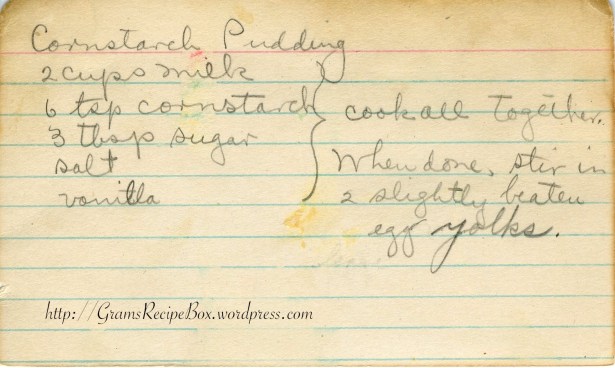 Cornstarch Pudding
2 cups milk
6 tsp cornstarch
3 tbsp sugar
salt
vanilla
cook all together.
When done, stir in
2 slightly beaten
egg yolks.
http://GramsRecipeBox.wordpress.com